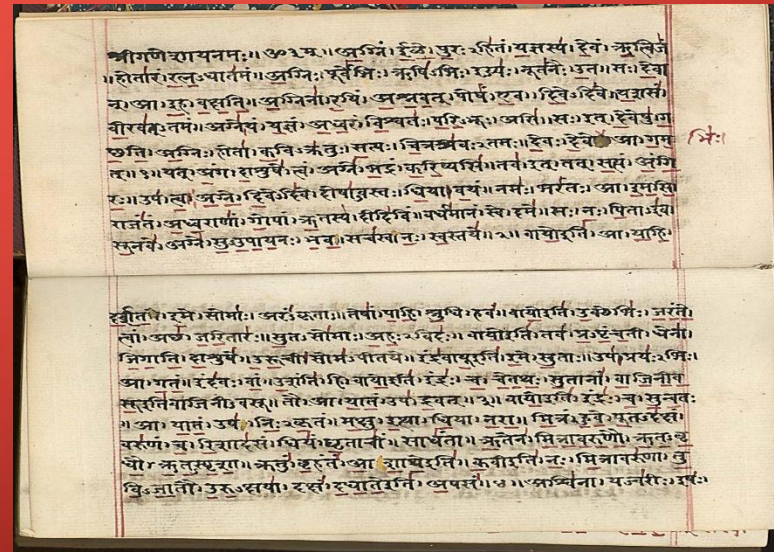 श्रीगणेशायनमः॥ॐ३म्॥अग्निं।ईळे।पुरःऽहितं।यज्ञस्य।देवं।ऋत्विजं
॥होतारं।रत्नऽधातमं॥अग्निः।पूर्वेभिः।ऋषिऽभिः।ईड्यः।नूतनैः।उत॥सः।देवा
न्।आ।इह।वक्षति॥अग्निना।रयिं।अश्नवत्।पोषं।एव।दिवेऽदिवे॥यशसं
वीरवत्ऽतमं॥अग्ने।यं।यज्ञं।अध्वरं।विश्वतः।परिऽभूः।असि॥सः।इत्।देवेषु।ग
च्छति।अग्निः।होता।कविऽक्रतुः।सत्यः।चित्रश्रवःऽतमः॥देवः।देवे आ।गम
भिः।
त्॥१॥यत्।अंग।दाशुषे।त्वं।अग्ने।भद्रं।करिष्यसि॥तव।इत्।तत्।सत्यं।अंगि
रः॥उप।त्वा।अग्ने।दिवेऽदिवे।दोषाऽवस्तः।धिया।वयं॥नमः।भरंतः।आ।इमसि॥
राजंतं।अध्वराणां।गोपां।ऋतस्य।दीदिविं॥वर्धमानं।स्वे।दमे॥सः।नः।पिताऽइव।
सूनवे।अग्ने।सुऽउपायनः।भव॥सचस्व।नः।स्वस्तये॥२॥वायोइति।आ।याहि।
दर्शत।इमे।सोमाः।अरंऽकृताः॥तेषां।पाहि।श्रुधि।हवं॥वायोइति।उक्थेभिः।जरंते।
त्वां।अच्छ।जरितारः॥सुतऽसोमाः।अहःऽविदः॥वायोइति।तव।प्रऽपृंचती।धेना।
जिगाति।दाशुषे॥उरूची।सोमऽपीतये॥इंद्रवायूइति।इमे।सुताः।उप।प्रयःऽभिः।
आ।गतं॥इंदवः।वां।उशंति।हि॥वायोइति।इंद्रः।च।चेतथः।सुतानां।वाजिनीव
सूइतिवाजिनीवसू॥तौ।आ।यातं।उप।द्रवत्॥३॥वायोइति।इंद्रः।च।सुन्वतः
॥आ।यातं।उप।निःऽकृतं॥मक्षु।इत्था।धिया।नरा॥मित्रं।हुवे।पूतऽदक्षं।
वरुणं।च।रिशादसं॥धियं।घृताचीं।साधंता॥ऋतेन।मित्रावरुणौ।ऋतऽवृ
धौ।ऋतऽस्पृशा॥क्रतुं।बृहंतं।आशाथेइति॥कवीइति।नः।मित्रावरुणा।तु
विऽजातौ।उरुऽक्षया॥दक्षं।दधातेइति।अपसं॥४॥अश्विना।यज्वरीः।इषः।